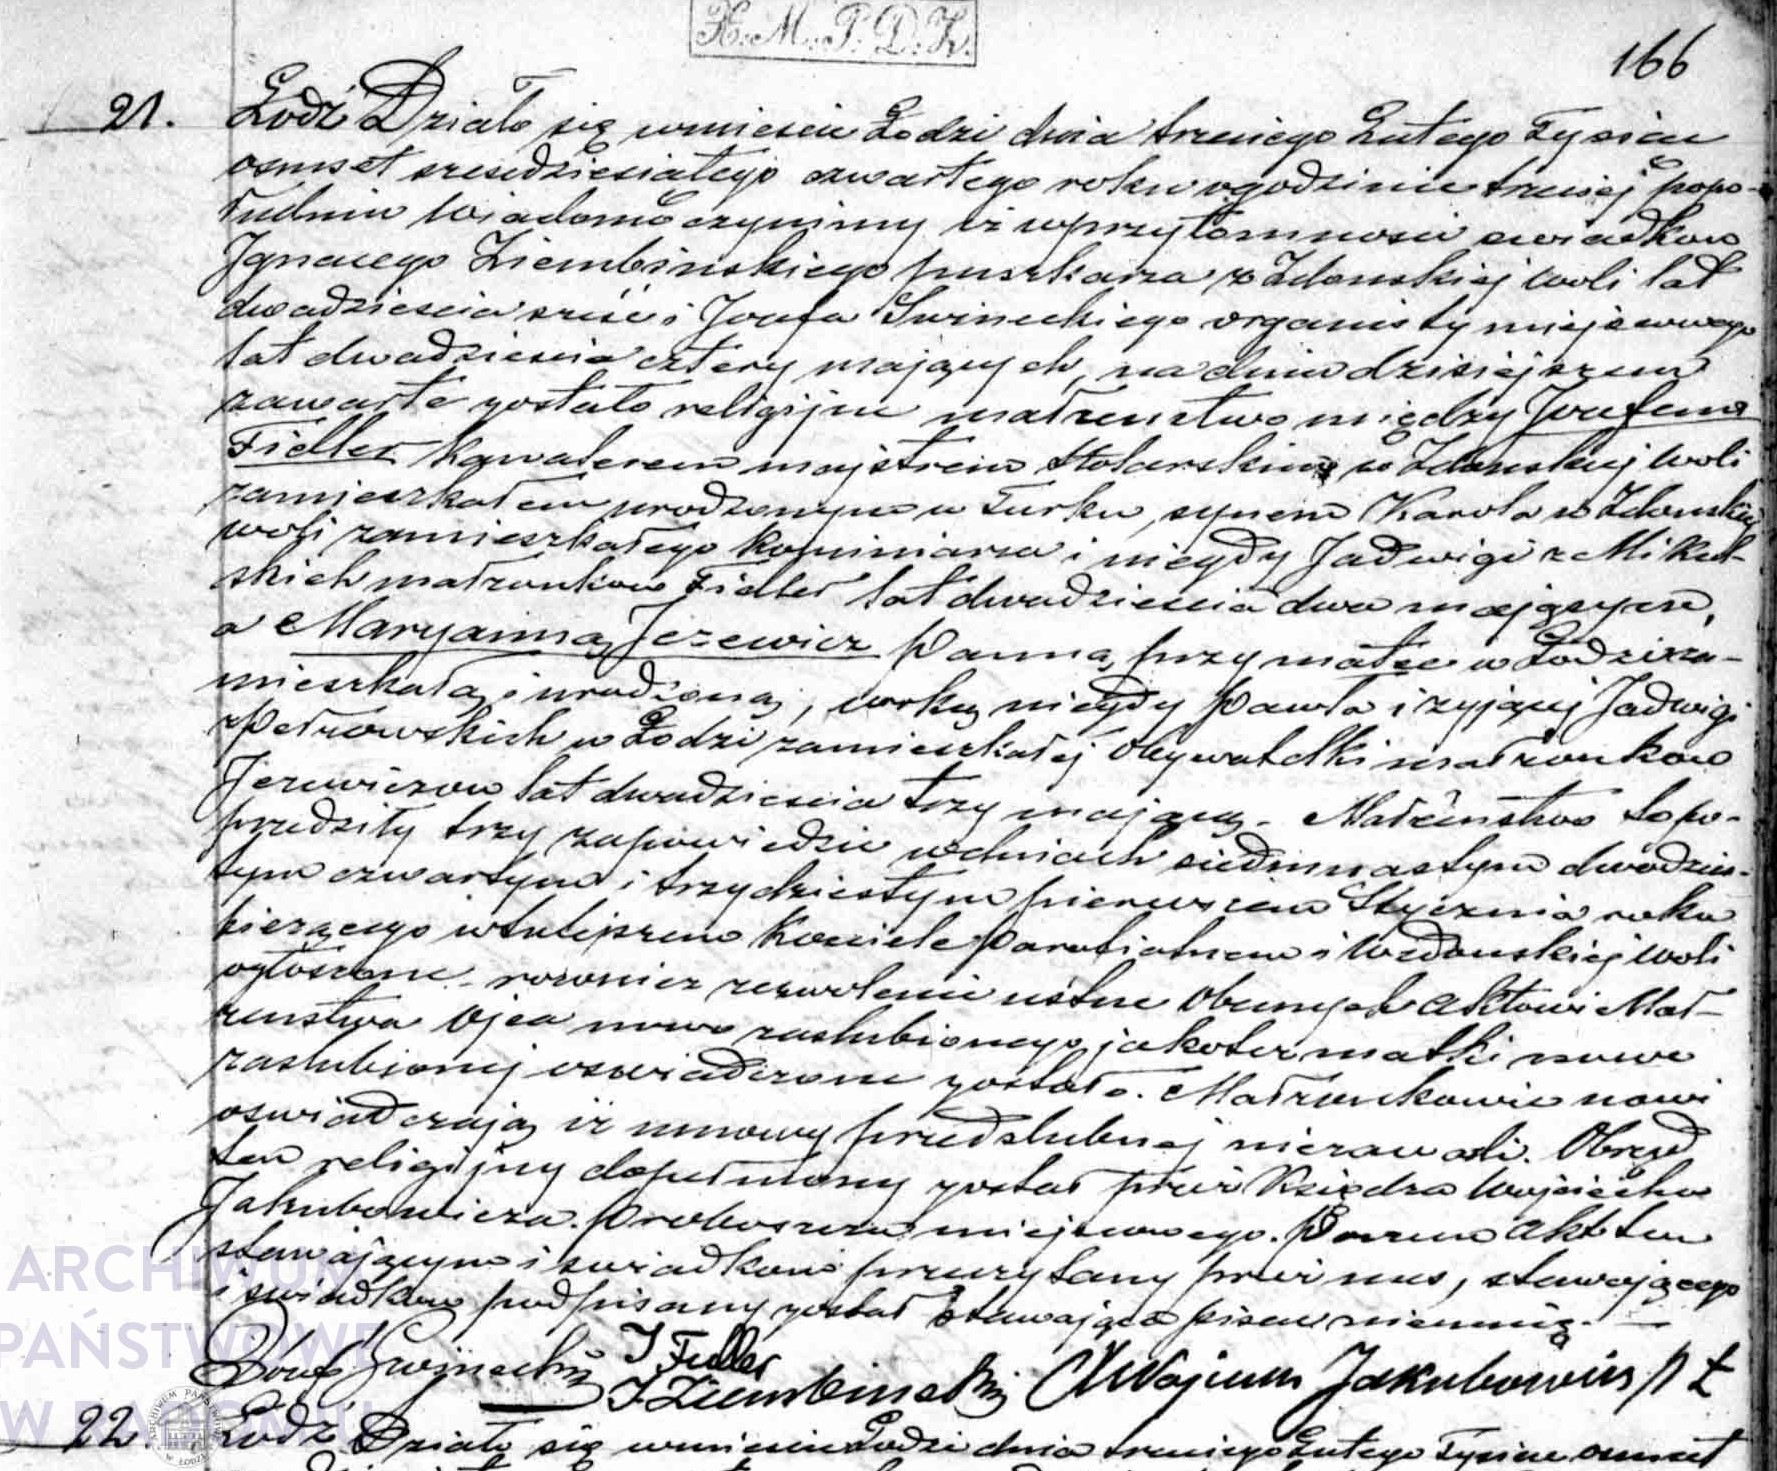 H. M. P. D. K.
166
21. Łodź Działo się wmieście Łodzi dnia trzeciego Lutego Tysiąc
osmset szesdziesiątego czwartego roku ogodzinie trzeciej popo-
łudniu Wiadomo czynimy iż wprzytomnosci swiadkow
Ignacego Ziembinskiego puszkarza z Zdonskiej Woli lat
dwadziescia szesć i Jozefa Swineckiego organisty miejscowego
lat dwadziescia cztery mających, na dniu dzisiejszem
zawarte zostało religijne małzenstwo między Jozefem
Fidler kawalerem majstrem stolarskim w Zdonskiej Woli
zamieszkałem urodzonym w Turku, synem Karola w Zdonskiej
woli zamieszkałego kominiarza i niegdy Jadwigi z Mikul-
skich małzonkow Fidler lat dwadziescia dwa mającym,
a Maryanną Jezewicz Panną przy matce w Łodzi za-
mieszkałą i urodzoną, corką niegdy Pawła i zyjącej Jadwigi z
Petrowskich w Łodzi zamieszkałej Obywatelki małzonkow
Jezewiczow lat dwadziescia trzy mającą. Małżeństwo to po-
przedziły trzy zapowiedzie wdniach siedmnastym dwodzies-
tym czwartym i trzydziestym pierwszem Stycznia roku
bierzącego wtutejszem Kosciele Parafialnem i w Zdonskiej Woli
ogłoszone - rowniez zezwolenie ustne Obecnych aktowi Mał-
zenstwa Ojca nowo zaslubionego jakotez matki nowo
zaslubionej oswiadczone zostało. Małzonkowie nowi
oswiadczają iż umowy przedslubnej niezawarli. Obrzęd
ten religijny dopełniony został przez Księdza Wojciecha
Jakubowicza Proboszcza miejscowego. Poczem Akt ten
stawającym i swiadkom przeczytany przez nas, stawającego
i swiadkow podpisany został stawająca pisac nieumie.
Jozef Swinecki J Fidler
I. Ziembinski X Wojciech Jakubowicz P Ł
22. Łodź Działo się wmieście Łodzi dnia trzeciego Lutego Tysiąc osmset
ARCHIWUM
PAŃSTWOWE
W RADOMIU